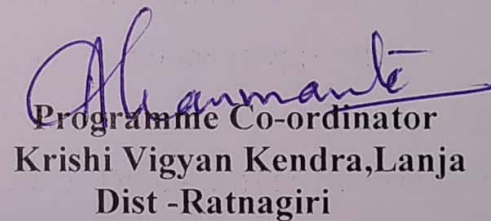 Programme Co-ordinator
Krishi Vigyan Kendra,Lanja
Dist -Ratnagiri